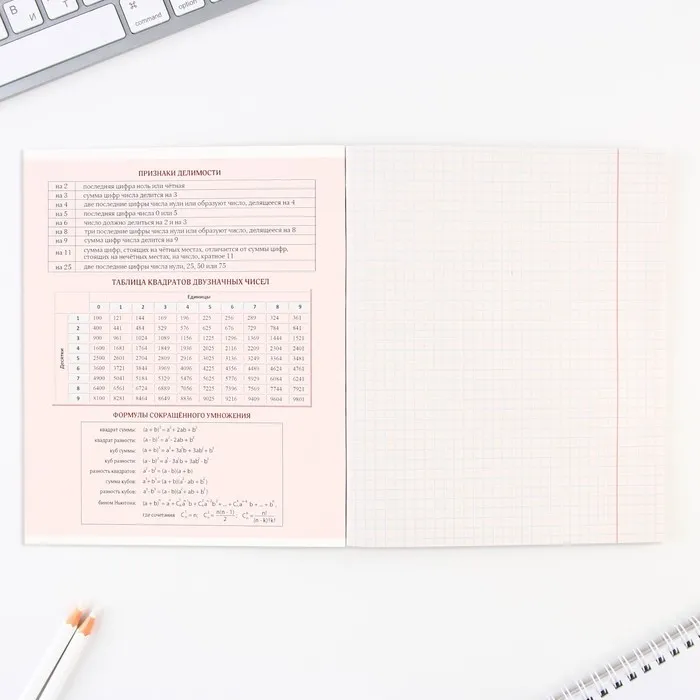 command
option
ПРИЗНАКИ ДЕЛИМОСТИ
на 2 последняя цифра ноль или чётная
на 3 сумма цифр числа делится на 3
на 4 две последние цифры числа нули или образуют число, делящееся на 4
на 5 последняя цифра числа 0 или 5
на 6 число должно делиться на 2 и на 3
на 8 три последние цифры числа нули или образуют число, делящееся на 8
на 9 сумма цифр числа делится на 9
на 11 сумма цифр, стоящих на чётных местах, отличается от суммы цифр,
стоящих на нечётных местах, на число, кратное 11
на 25 две последние цифры числа нули, 25, 50 или 75
ТАБЛИЦА КВАДРАТОВ ДВУЗНАЧНЫХ ЧИСЕЛ
Единицы
0 1 2 3 4 5 6 7 8 9
Десятки
1 100 121 144 169 196 225 256 289 324 361
2 400 441 484 529 576 625 676 729 784 841
3 900 961 1024 1089 1156 1225 1296 1369 1444 1521
4 1600 1681 1764 1849 1936 2025 2116 2209 2304 2401
5 2500 2601 2704 2809 2916 3025 3136 3249 3364 3481
6 3600 3721 3844 3969 4096 4225 4356 4489 4624 4761
7 4900 5041 5184 5329 5476 5625 5776 5929 6084 6241
8 6400 6561 6724 6889 7056 7225 7396 7569 7744 7921
9 8100 8281 8464 8649 8836 9025 9216 9409 9604 9801
ФОРМУЛЫ СОКРАЩЁННОГО УМНОЖЕНИЯ
квадрат суммы: (a + b)² = a² + 2ab + b²
квадрат разности: (a - b)² = a² - 2ab + b²
куб суммы: (a + b)³ = a³ + 3a²b + 3ab² + b³
куб разности: (a - b)³ = a³ - 3a²b + 3ab² - b³
разность квадратов: a² - b² = (a - b)(a + b)
сумма кубов: a³ + b³ = (a + b)(a² - ab + b²)
разность кубов: a³ - b³ = (a - b)(a² + ab + b²)
бином Ньютона:
где сочетания